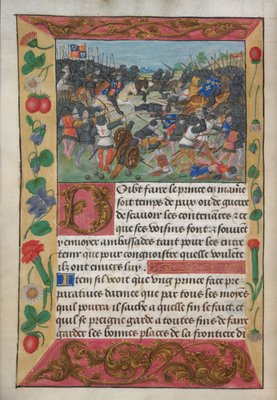 Doibt faire le prince en maine
soit temps de paix ou de guerre
de scauoir les contenances & ce
que ses voisins font & souuet
y enuoyer ambassades tant pour les entre
tenir que pour congnoistre quelle voulente
ilz ont enuers luy.
Item sil veoit que vng prince face pre
paratiues darmee que par tous les moyes
quil pourra il sache a quelle fin le fait. et
quil se preigne garde a toutes fins de faire
garder les bonnes places de la frontiere di